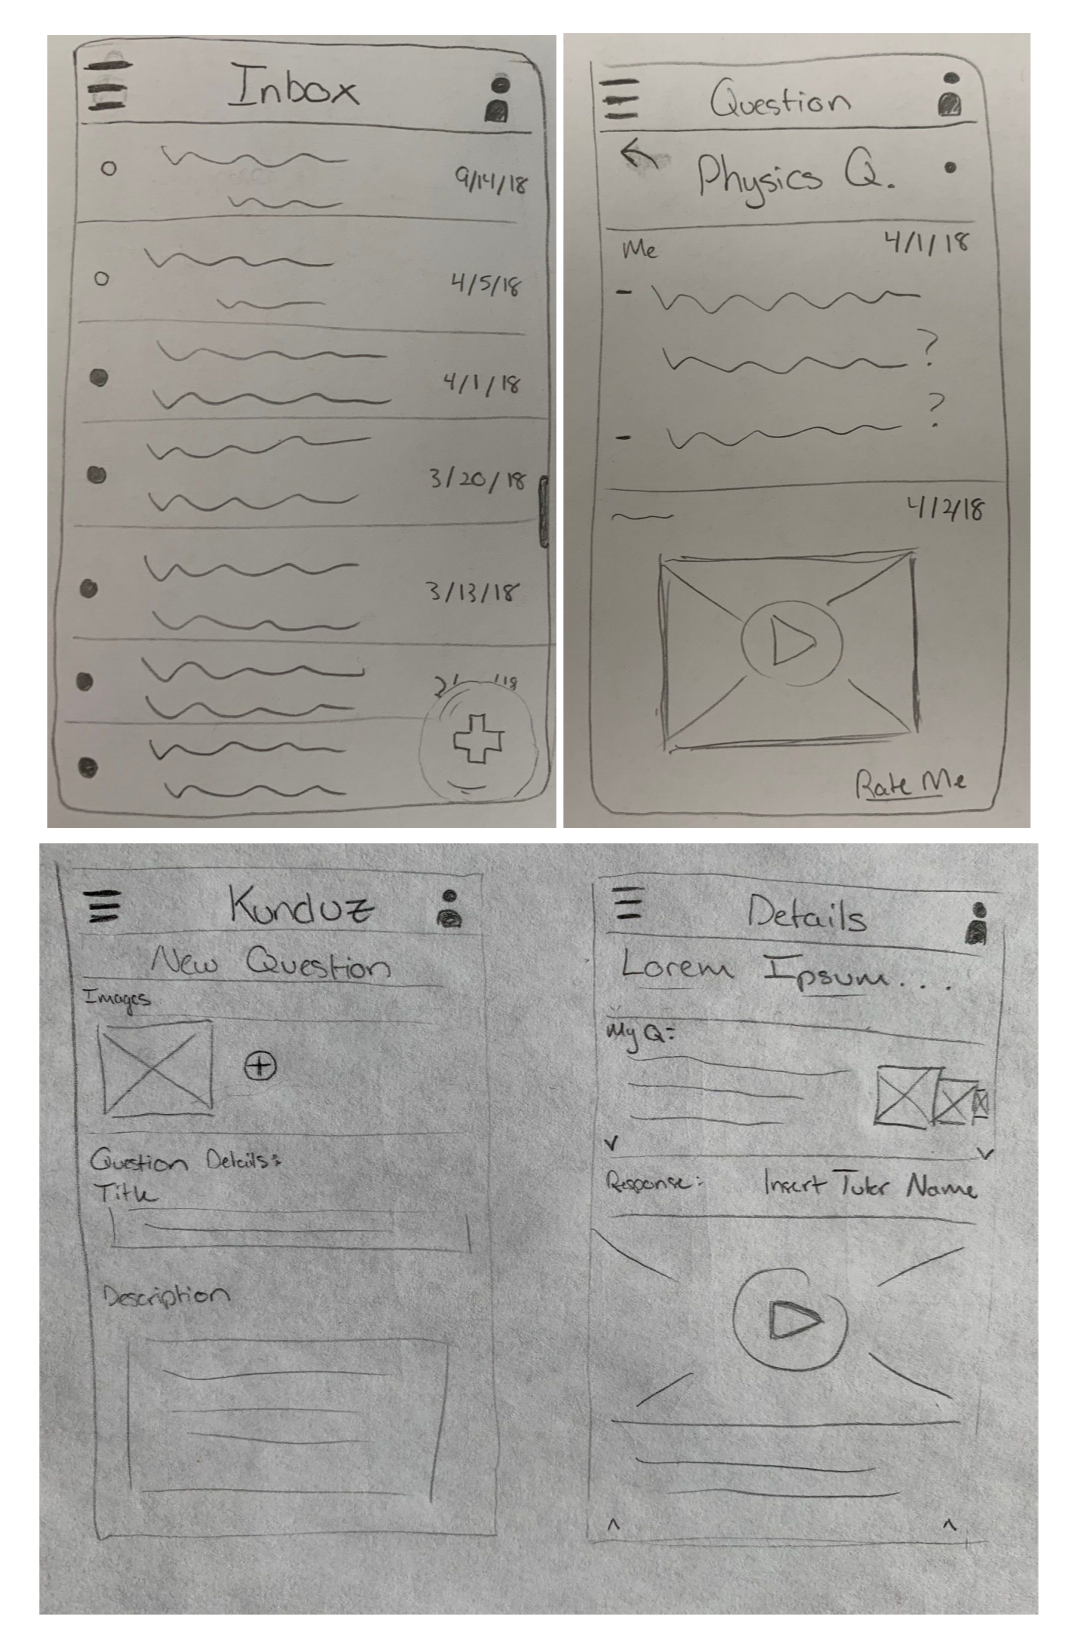 Inbox
9/14/18
4/5/18
4/1/18
3/20/18
3/13/18
Question
Physics Q.
Me 4/1/18
?
?
4/2/18
Rate Me
Kunduz
New Question
Images
Question Details:
Title
Description
Details
Lorem Ipsum...
My Q:
Response: Insert Tutor Name